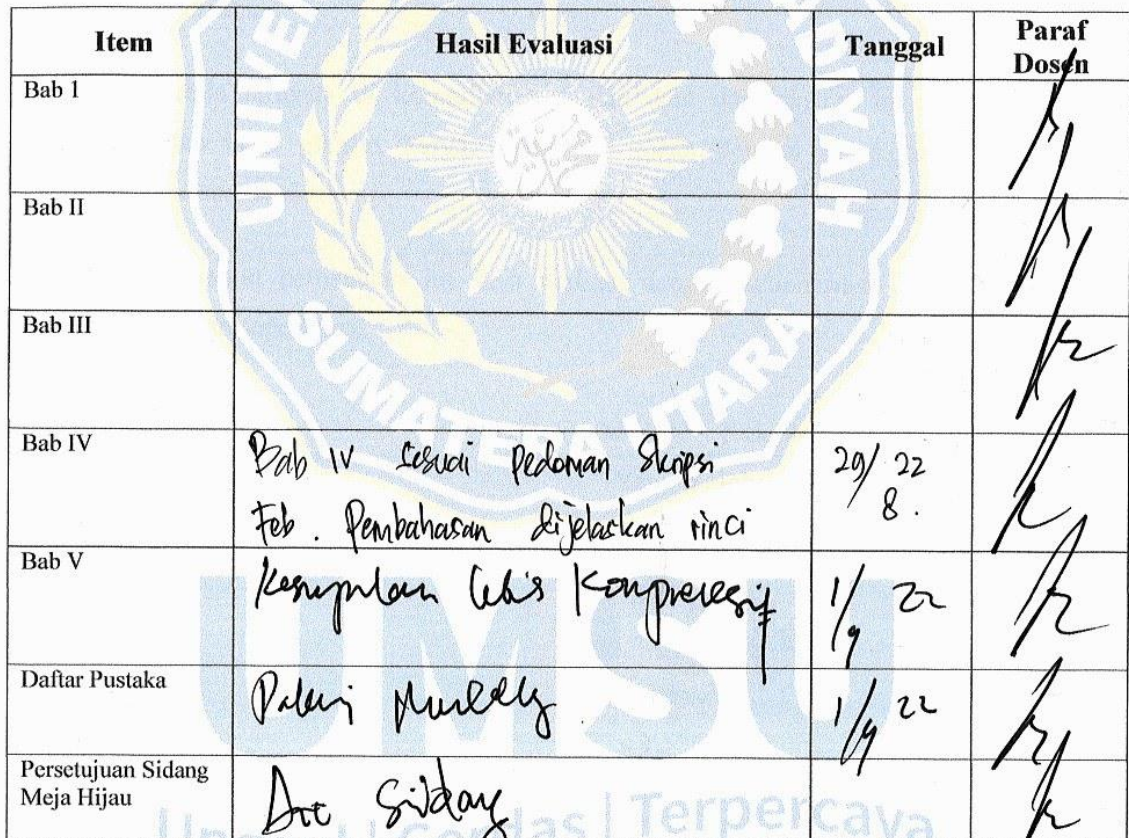 Item Hasil Evaluasi Tanggal Paraf Dosen
Bab 1
Bab II
Bab III
Bab IV Bab IV sesuai Pedoman Skripsi 29/8 22.
Feb. Pembahasan dijelaskan rinci
Bab V Kesimpulan lebih 1/9 22
Daftar Pustaka Mendeley 1/9 22
Persetujuan Sidang Acc Sidang
Meja Hijau
SUMATERA UTARA
UMSU
Unggul | Cerdas | Terpercaya